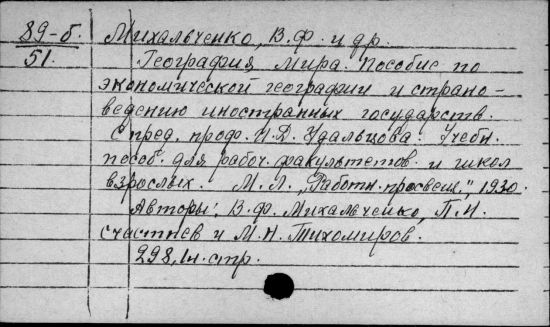 89-б. Михальченко, В.Ф. и др.
51. География мира. Пособие по
экономической географии и страно-
ведению иностранных государств.
С пред. проф. И.Д. Удальцова. Учебн.
пособ. для рабоч. факультетов и школ
взрослых. М.Л. "Работн. просвещ.", 1930.
Авторы: В.Ф. Михальченко, П.И.
Счастнев и М.Н. Тихомиров.
298, 1н. стр.